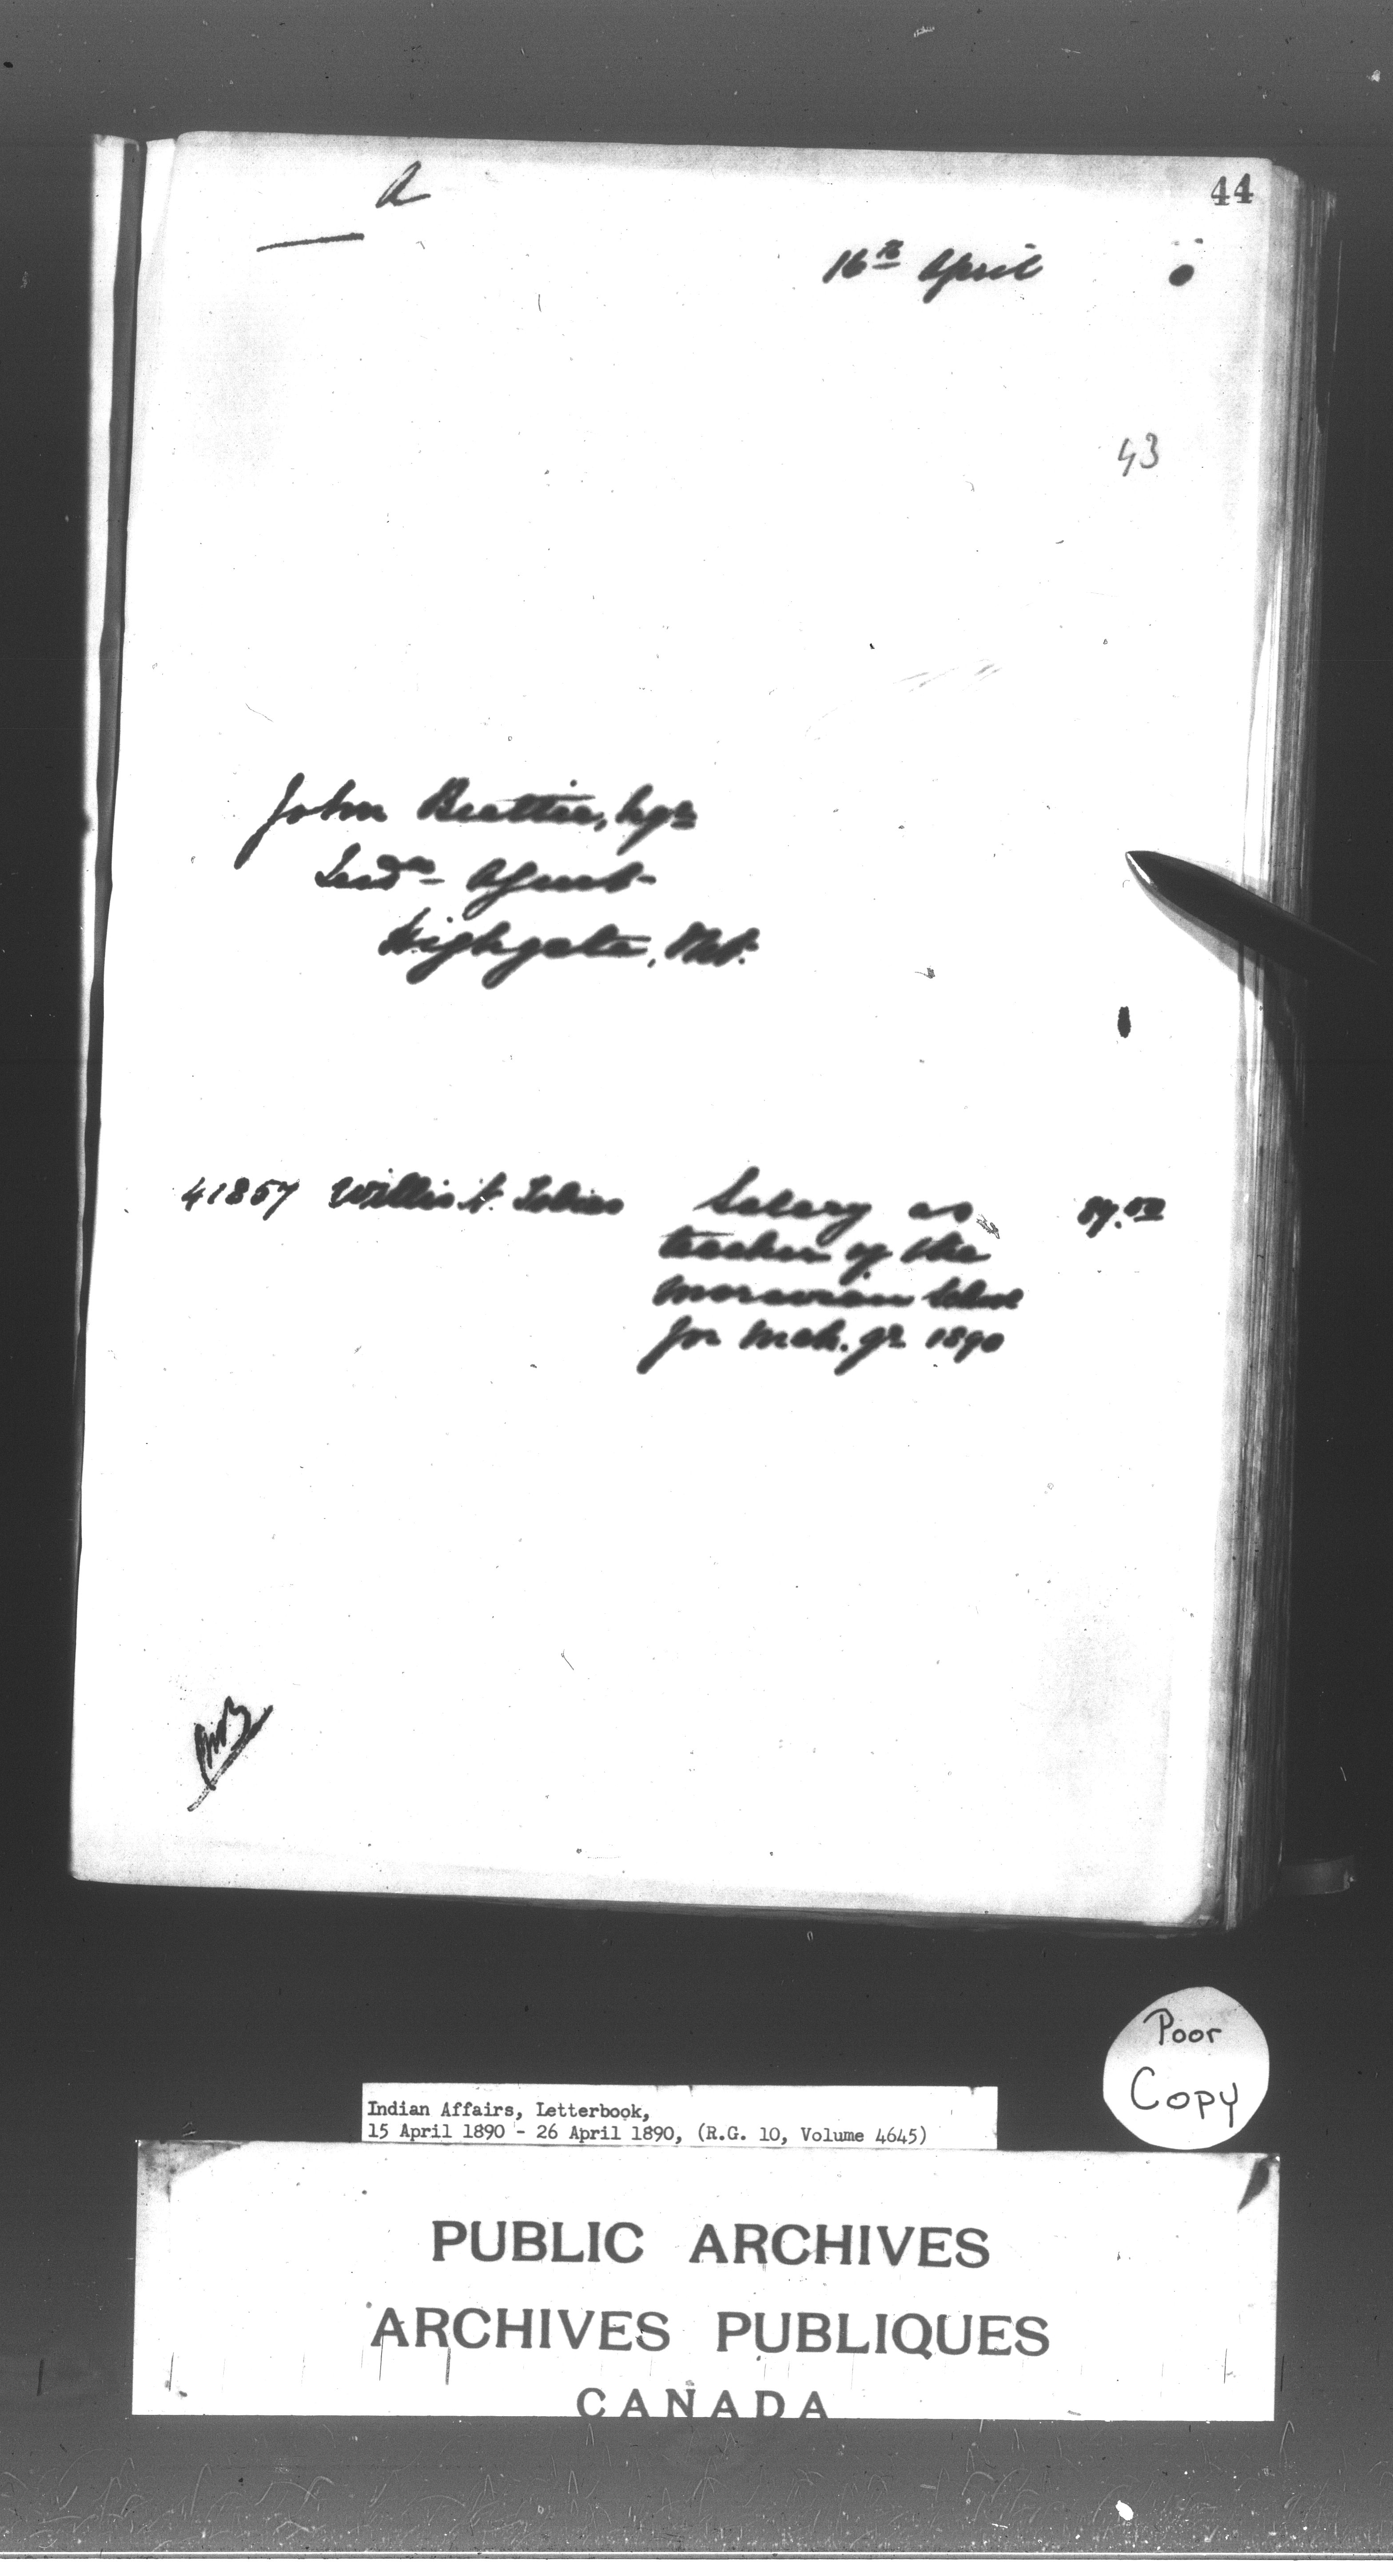 A
44
16th April 0
43
John Beattie, Esqr
Indn Agent
Highgate, Ont.
41857 Willis N. Tobias Salary as 87.50
teacher of the
Moravian School
for Mch. qr 1890
Poor
Copy
Indian Affairs, Letterbook,
15 April 1890 - 26 April 1890, (R.G. 10, Volume 4645)
PUBLIC ARCHIVES
ARCHIVES PUBLIQUES
CANADA